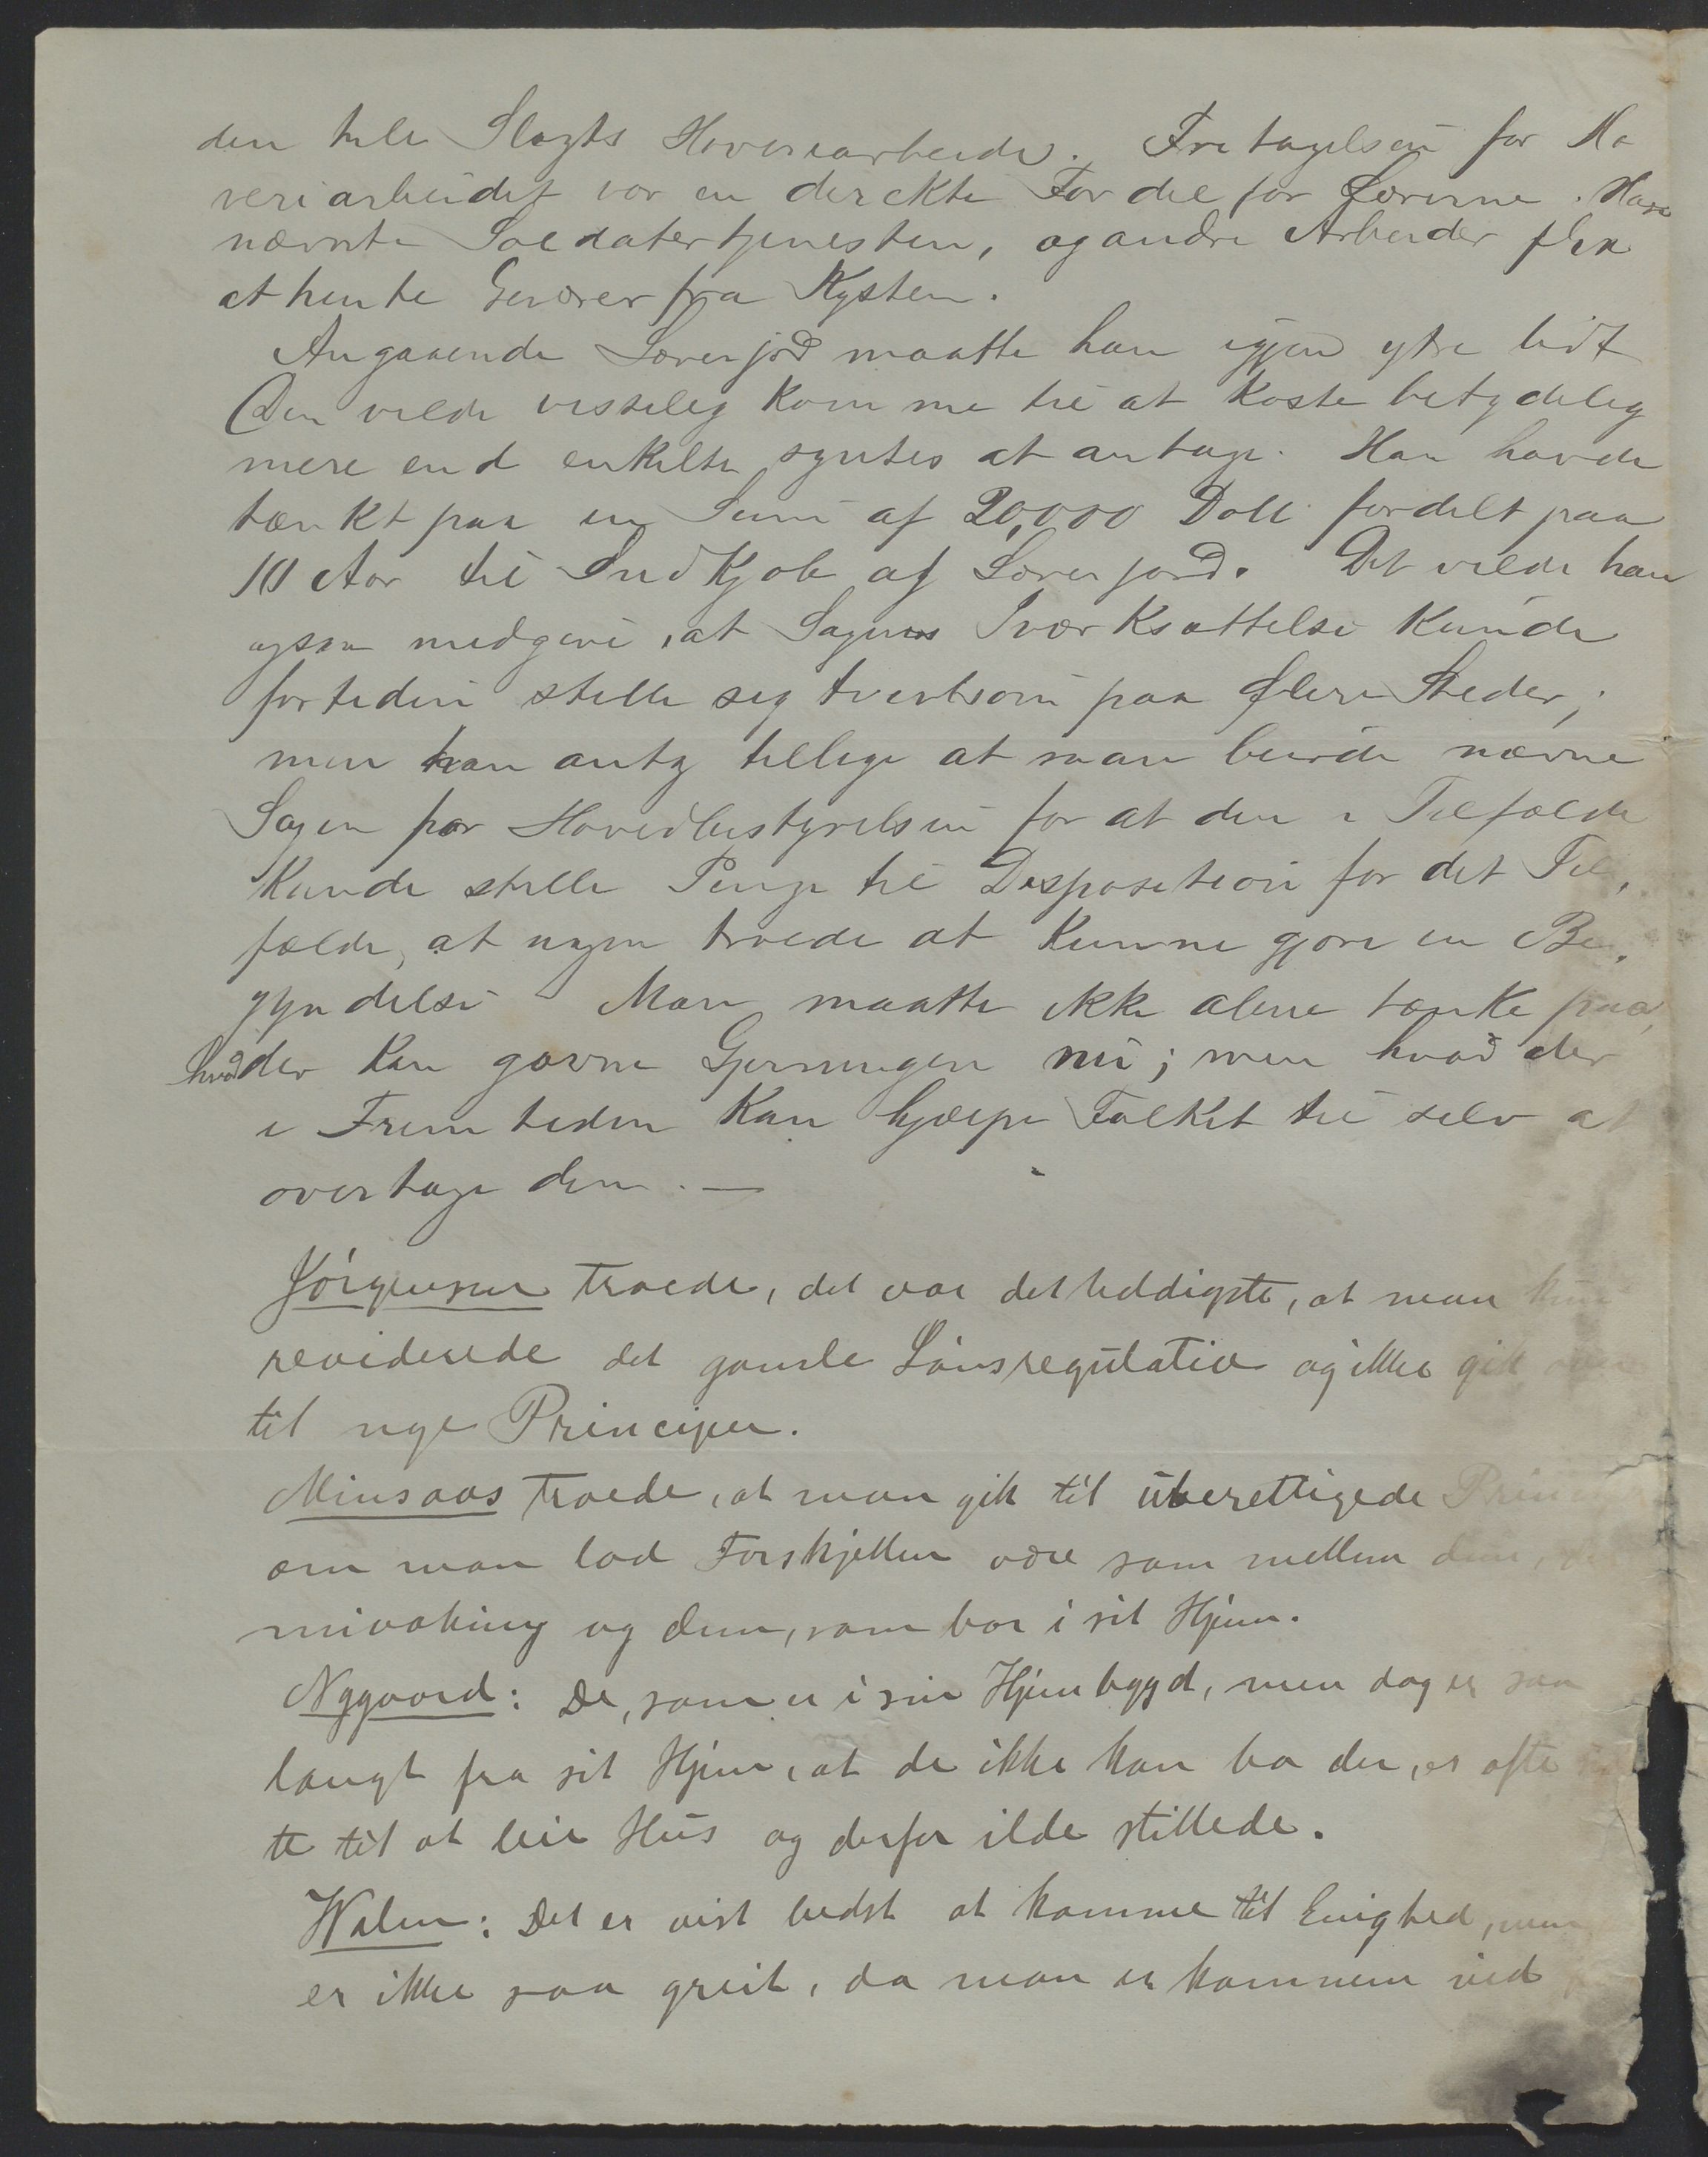 den hele Slagts Hoveriarbeide. Fritagelsen for Ho
veriarbeidet var en direkte Fordel for Lærerne. Han
nævnte Soldatertjenesten, og andre Arbeider f Ex
at hente Geværer fra Kysten.
Angaaende Lærerjord maatte han igjen ytre lidt
Den vilde visselig komme til at koste betydelig
mere end enkelte syntes at antage. Han havde
tænkt paa en Sum af 20,000 Doll fordelt paa
10 Aar til Indkjøb af Lærerjord. Det vilde han
ogsaa medgive, at Sagens Iværksættelse kunde
fortiden stille sig tvertsom paa flere Steder;
men han antog tillige at man burde nævne
Sagen for Hovedbestyrelsen for at den i Tilfælde
kunde stille Penge til Disposition for det Til,
fælde, at nogen troede at kunne gjøre en Be,
gyndelse – Man maatte ikke alene tænke paa,
hvad der kan gavne Gjerningen nu; men hvad der
i Fremtiden kan hjælpe Folket til selv at
overtage den. —
Jörgensen troede, det var det heldigste, at man kun
reviderede det gamle Lønsregulativ og ikke gik over
til nye Principer.
Minsaas troede, at man gik til uberettigede
om man lod Forskjellen være som mellem dem,
mivahiny og dem, som bor i sit Hjem.
Nygaard: De, som er i sin Hjembygd, men dog er saa
langt fra sit Hjem, at de ikke kan bo der, er ofte
te til at leie Hus og derfor ilde stillede.
Walen: Det er vist bedst at komme til Enighed, men
er ikke saa greit, da man er kommen ind